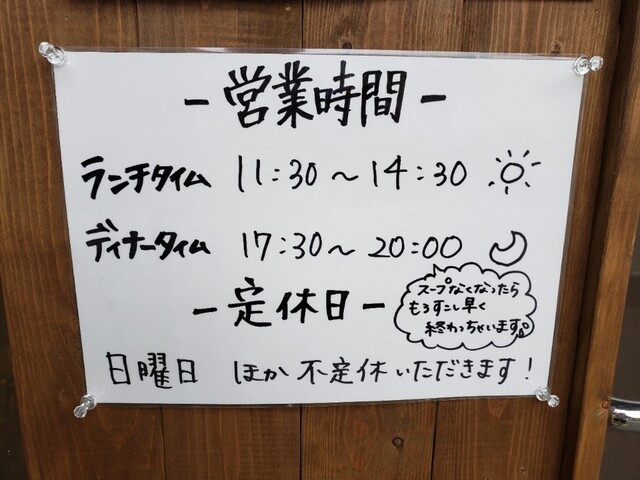 -営業時間-
ランチタイム 11:30～14:30
ディナータイム 17:30～20:00
-定休日-
スープなくなったら
もうすこし早く
終わっちゃいます。
日曜日 ほか 不定休いただきます!